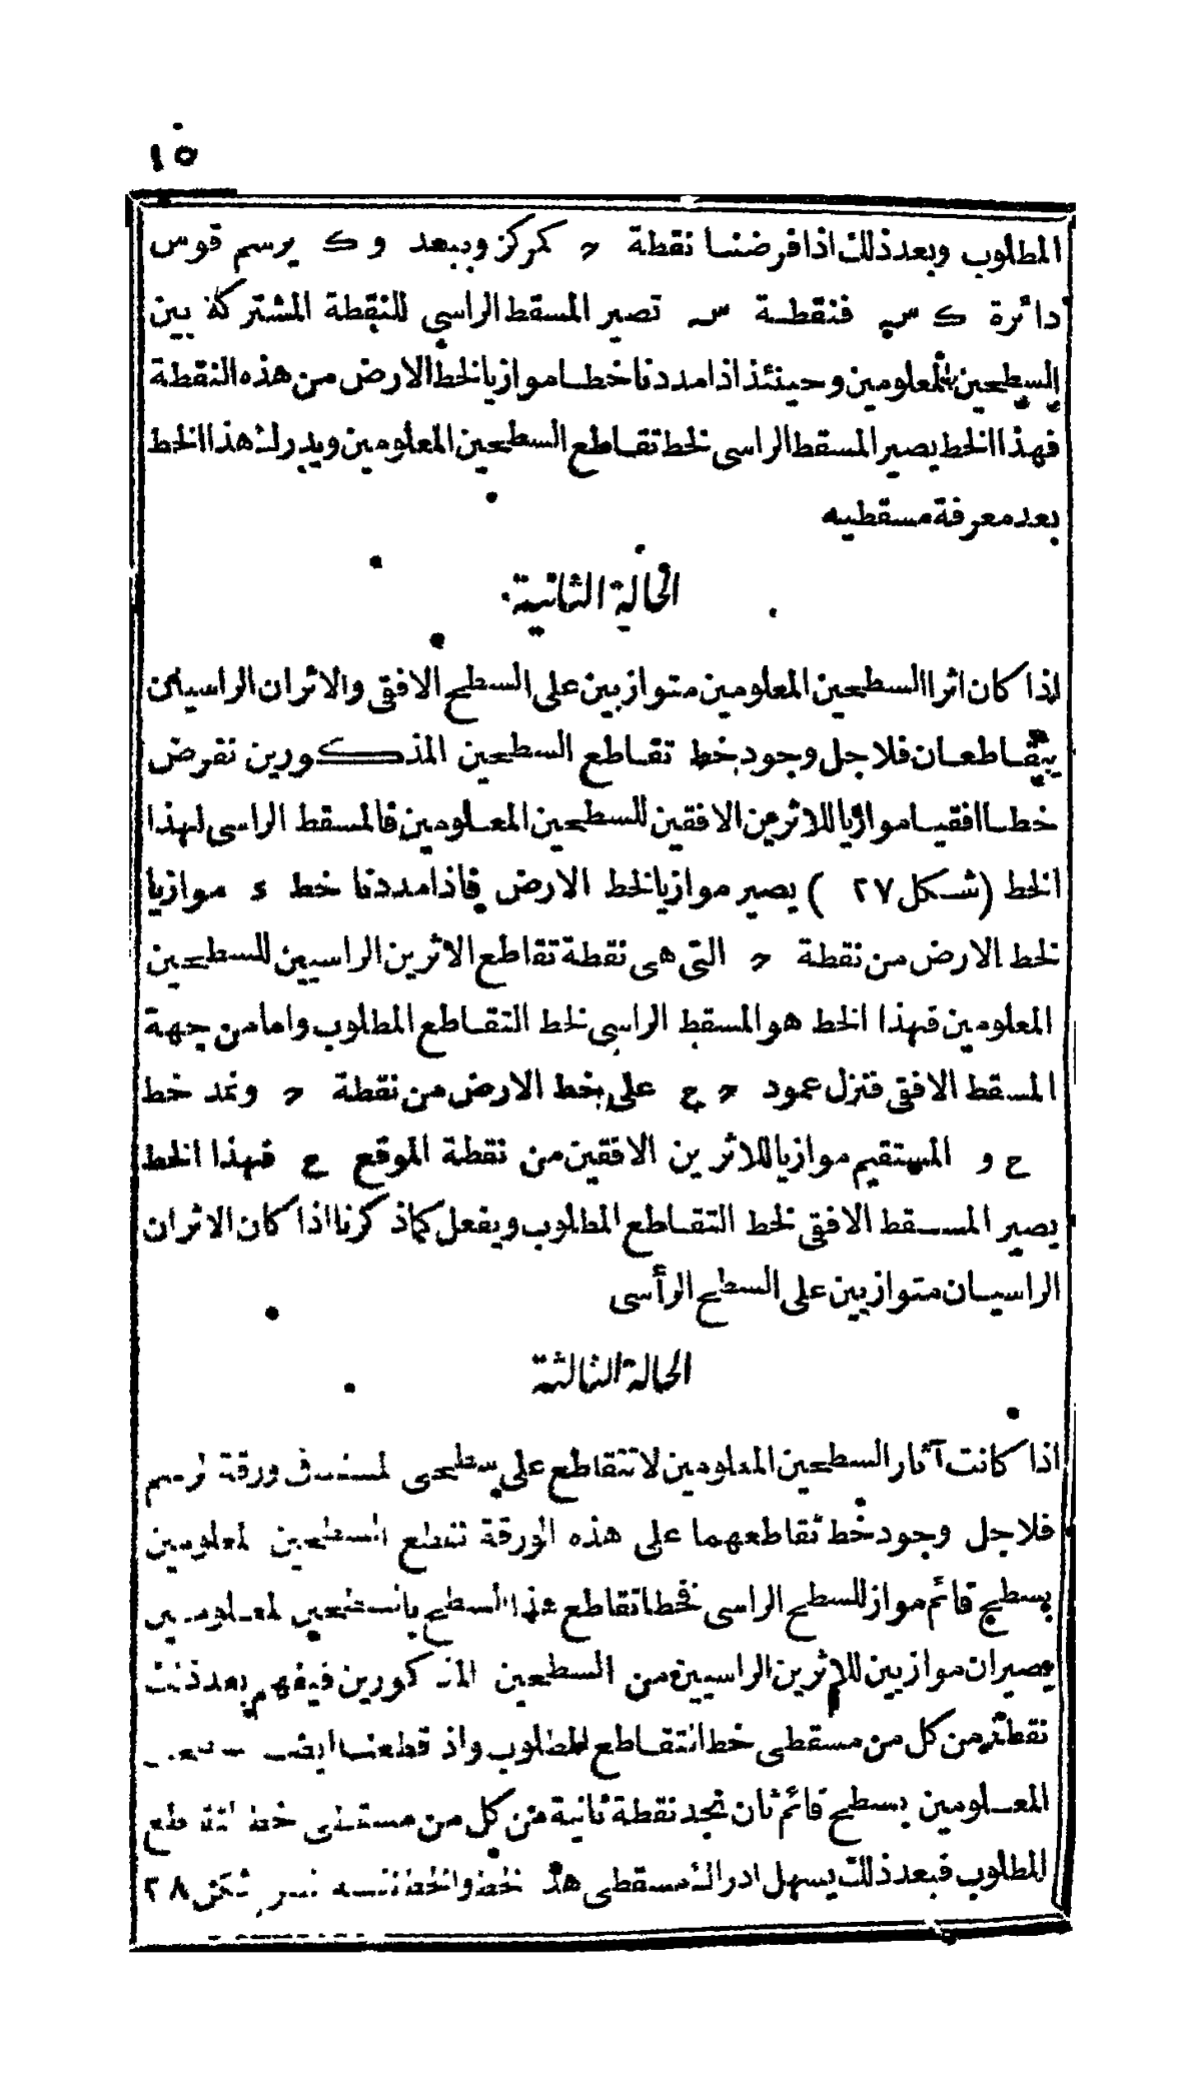 ١٥
المطلوب وبعد ذلك اذا فرضنا نقطة ح كمركز وببعد و ك يرسم قوس
دائرة ك س فنقطة س تصير المسقط الراسي للنقطة المشتركة بين
السطحين المعلومين وحينئذ اذا مددنا خطا موازيا لخط الارض من هذه النقطة
فهذا الخط يصير المسقط الراسى لخط تقاطع السطحين المعلومين ويدرك هذا الخط
بعد معرفة مسقطيه
الحالة الثانية
اذا كان اثرا السطحين المعلومين متوازيين على السطح الافقى والاثران الراسيان
يتقاطعان فلاجل وجود خط تقاطع السطحين المذكورين نفرض
خطا افقيا موازيا للاثرين الافقين للسطحين المعلومين فالمسقط الراسى لهذا
الخط (شكل ٢٧ ) يصير موازيا لخط الارض فاذا مددنا خط ء موازيا
لخط الارض من نقطة ح التى هى نقطة تقاطع الاثرين الراسيين للسطحين
المعلومين فهذا الخط هو المسقط الراسى لخط التقاطع المطلوب واما من جهة
المسقط الافقى فننزل عمود ح ع على خط الارض من نقطة ح ونمد خط
ع و المستقيم موازيا للاثرين الافقين من نقطة الموقع ع فهذا الخط
يصير المسقط الافقى لخط التقاطع المطلوب ويفعل كما ذكرنا اذا كان الاثران
الراسيان متوازيين على السطح الرأسى
الحالة الثالثة
اذا كانت آثار السطحين المعلومين لا تتقاطع على سطحى المسقط فى ورقة الرسم
فلاجل وجود خط تقاطعهما على هذه الورقة نقطع السطحين المعلومين
بسطح قائم مواز للسطح الراسى فخطا تقاطع هذا السطح بالسطحين المعلومين
يصيران موازيين للاثرين الراسيين من السطحين المذكورين فيفهم بعد ذلك
نقطة من كل من مسقطى خط التقاطع المطلوب واذا قطعنا ايضا
المعلومين بسطح قائم ثان نجد نقطة ثانية من كل من مسقطى خط التقاطع
المطلوب فبعد ذلك يسهل ادراك مسقطى هذا الخط والخط نفسه شكل ٢٨